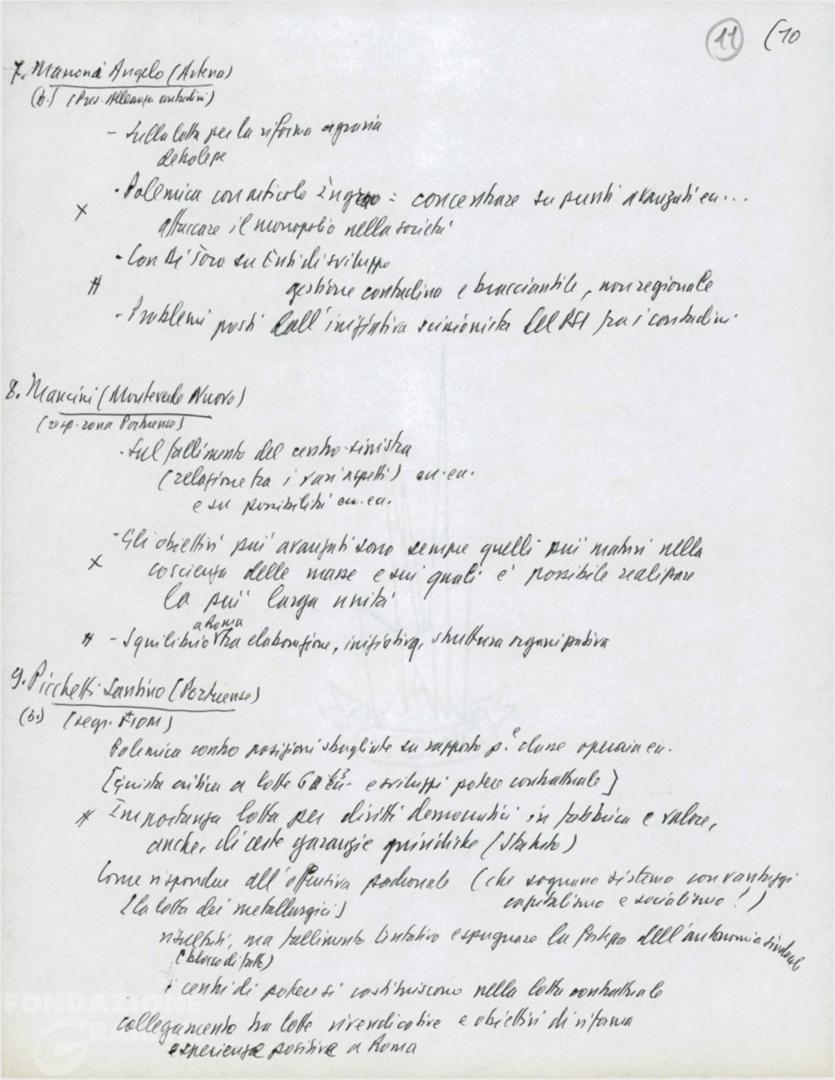 11 (10
7. Mammona Angelo (Artena)
(b.) (Pres. Alleanza contadini)
- Sulla lotta per la riforma agraria
debolezze
x · Polemica con articolo Ingrao = concentrare su punti avanzati ecc...
attaccare il monopolio nella società
· Con Di Toro su Enti di sviluppo
# gestione contadina e bracciantile, non regionale
· Problemi posti dall'iniziativa scissionista del PSI fra i contadini
8. Mancini (Monteverde Nuovo)
(resp. zona Portuense)
· Sul fallimento del centro-sinistra
(relazione tra i vari aspetti) ecc. ecc.
e su possibilità ecc. ecc.
x · Gli obiettivi più avanzati sono sempre quelli più maturi nella
coscienza delle masse e sui quali è possibile realizzare
la più larga unità
a Roma
# - Squilibrio tra elaborazione, iniziativa, struttura organizzativa
9. Picchetti Santino (Portuense)
(b.) (segr. FIOM)
Polemica contro posizioni sbagliate su rapporto p. e classe operaia ecc.
[giusta critica a lotte e sviluppi potere contrattuale]
# Importanza lotta per diritti democratici in fabbrica e valore,
anche, di certe garanzie giuridiche (Statuto)
Come rispondere all'offensiva padronale (che sognano sistema con vantaggi
capitalismo e socialismo!)
[la lotta dei metallurgici]
risultati, ma fallimento tentativo espugnare la fortezza dell'autonomia sindacale
(blocco di fatto)
i centri di potere si costituiscono nella lotta contrattuale
collegamento tra lotte rivendicative e obiettivi di riforma
esperienze positive a Roma
FONDAZIONE
GRAMSCI